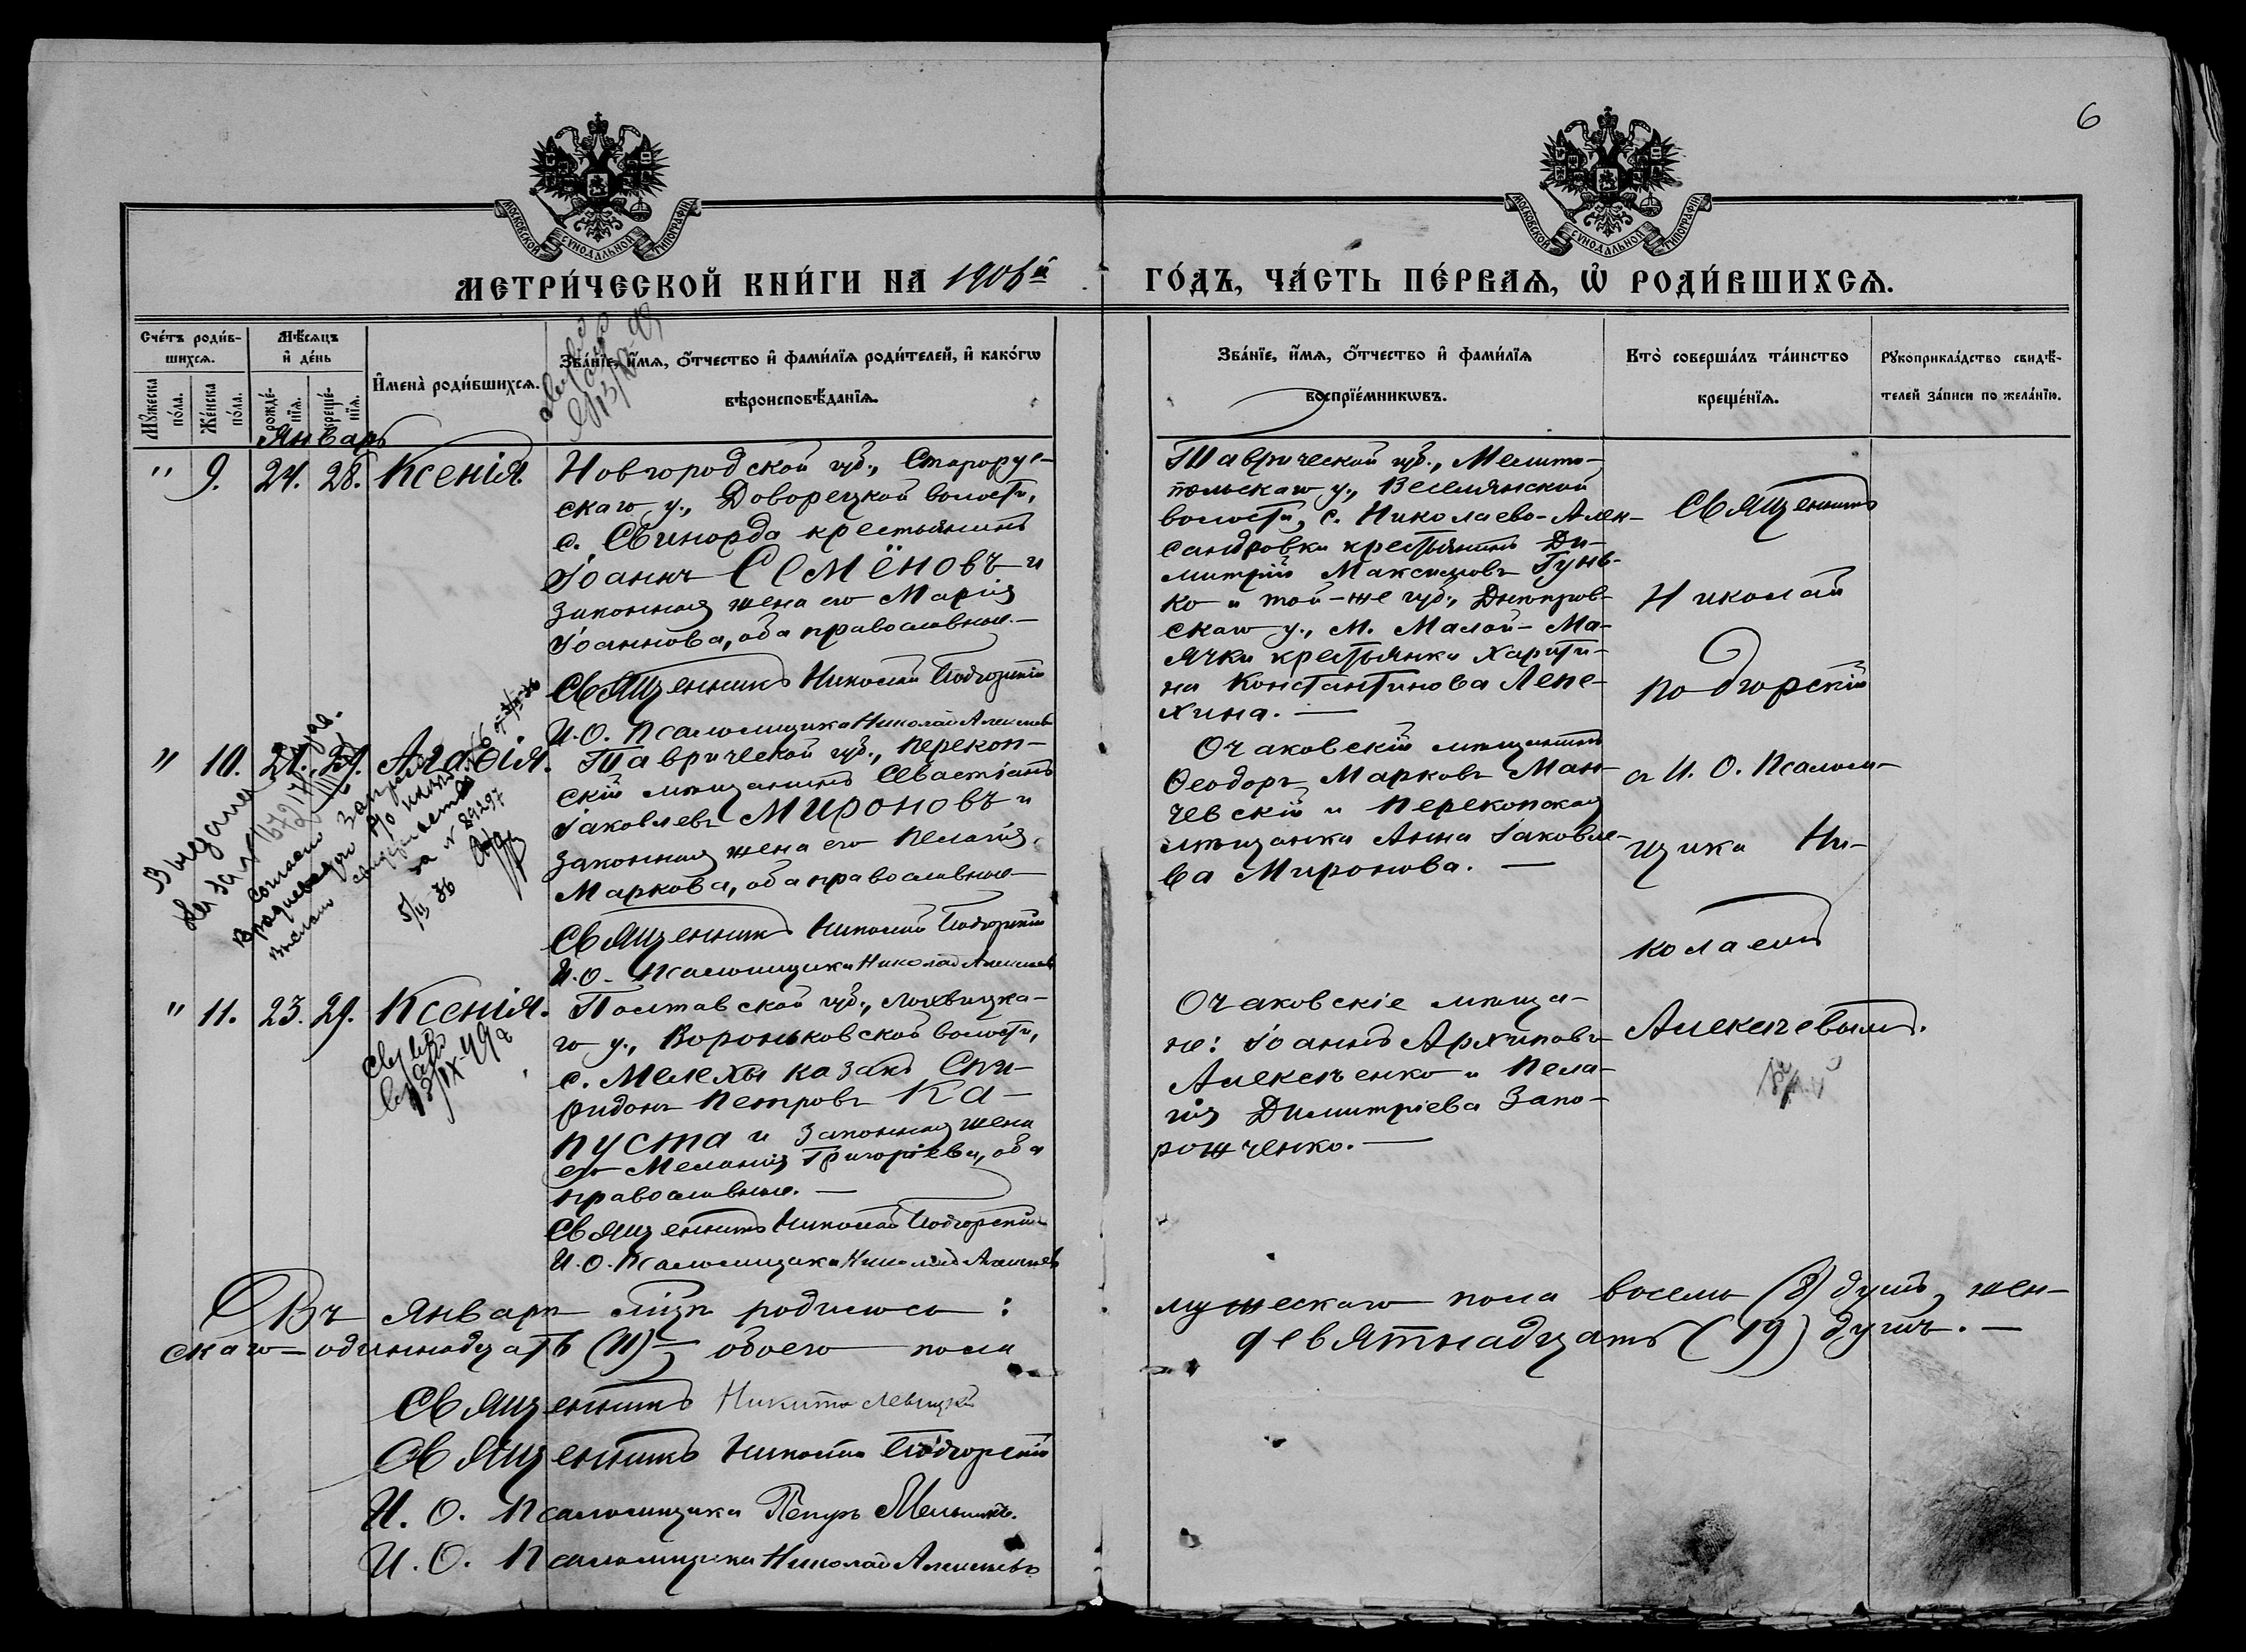 6
МОСКОВСКОЙ СѴНОДАЛЬНОЙ ТИПОГРАФІИ
МОСКОВСКОЙ СѴНОДАЛЬНОЙ ТИПОГРАФІИ
МЕТРИ́ЧЕСКОЙ КНИ́ГИ НА 1906й
ГО́ДЪ, ЧА́СТЬ ПЕ́РВАѦ, Ѡ҆ РОДИ́ВШИХСѦ.
Сче́тъ роди́в-
шихсѧ.
Мѣ́сѧцъ
и҆ де́нь
Мꙋ́жеска
по́ла.
Же́нска
по́ла.
рожде́-
нїѧ.
креще́-
нїѧ.
И҆мена̀ роди́вшихсѧ.
Зва́нїе, и҆́мѧ, ѻ҆́тчество и҆ фами́лїѧ роди́телей, и҆ како́гѡ
вѣроисповѣ́данїѧ.
Зва́нїе, и҆́мѧ, ѻ҆́тчество и҆ фами́лїѧ
воспрїе́мникѡвъ.
Кто̀ соверша́лъ та́инство
креще́нїѧ.
Рꙋкоприкла́дство свидѣ́-
телей за́писи по жела́нїю.
Январь
" 9. 24. 28. Ксенія.
Новгородской губ., Старорус-
скаго у., Доворецкой волости,
с. Свинорда крестьянинъ
Іоаннъ Семёновъ и
законная жена его Марія
Іоаннова, оба православные.—
Священникъ Николай Подгорскій
И. О. Псаломщика Николай Алексѣевъ
Таврической губ., Мелито-
польскаго у., Веселянской
волости, с. Николаево-Алек-
сандровки крестьянинъ Ди-
митрій Максимовъ Гунь-
ко и той-же губ., Днѣпров-
скаго у., м. Малой-Ма-
ячки крестьянка Харити-
на Константинова Лепе-
хина.—
Священникъ
Николай
Подгорскій
с И. О. Псалом-
щика Ни-
колаемъ
Алексѣевымъ.
" 10. 21. 29. Агафія.
Таврической губ., Перекоп-
скій мѣщанинъ Севастіанъ
Іаковлевъ Мироновъ и
законная жена его Пелагія
Маркова, оба православные—
Священникъ Николай Подгорскій
И. О. Псаломщика Николай Алексѣевъ
Очаковскій мѣщанинъ
Ѳеодоръ Марковъ Ман-
чевскій и Перекопская
мѣщанка Анна Іаковле-
ва Миронова.—
Выдана
Согласно
на № 89297
5/II 36
" 11. 23. 29. Ксенія.
Полтавской губ., Лохвицка-
го у., Вороньковской волости,
с. Мелехы казакъ Спи-
ридонъ Петровъ Ка-
пуста и законная жена
его Меланія Григоріева, оба
православные.—
Священникъ Николай Подгорскій
И. О. Псаломщика Николай Алексѣевъ
Очаковскіе мѣща-
не: Іоаннъ Архиповъ
Алексѣенко и Пела-
гія Димитріева Запо-
рожченко.—
Въ Январѣ м҃цѣ родилось: мужескаго пола восемь (8) душъ, жен-
скаго—одиннадцать (11), обоего пола девятнадцать (19) душъ.—
Священникъ Никита Левицкій
Священникъ Николай Подгорскій
И. О. Псаломщика Петръ Мельникъ.
И. О. Псаломщика Николай Алексѣевъ